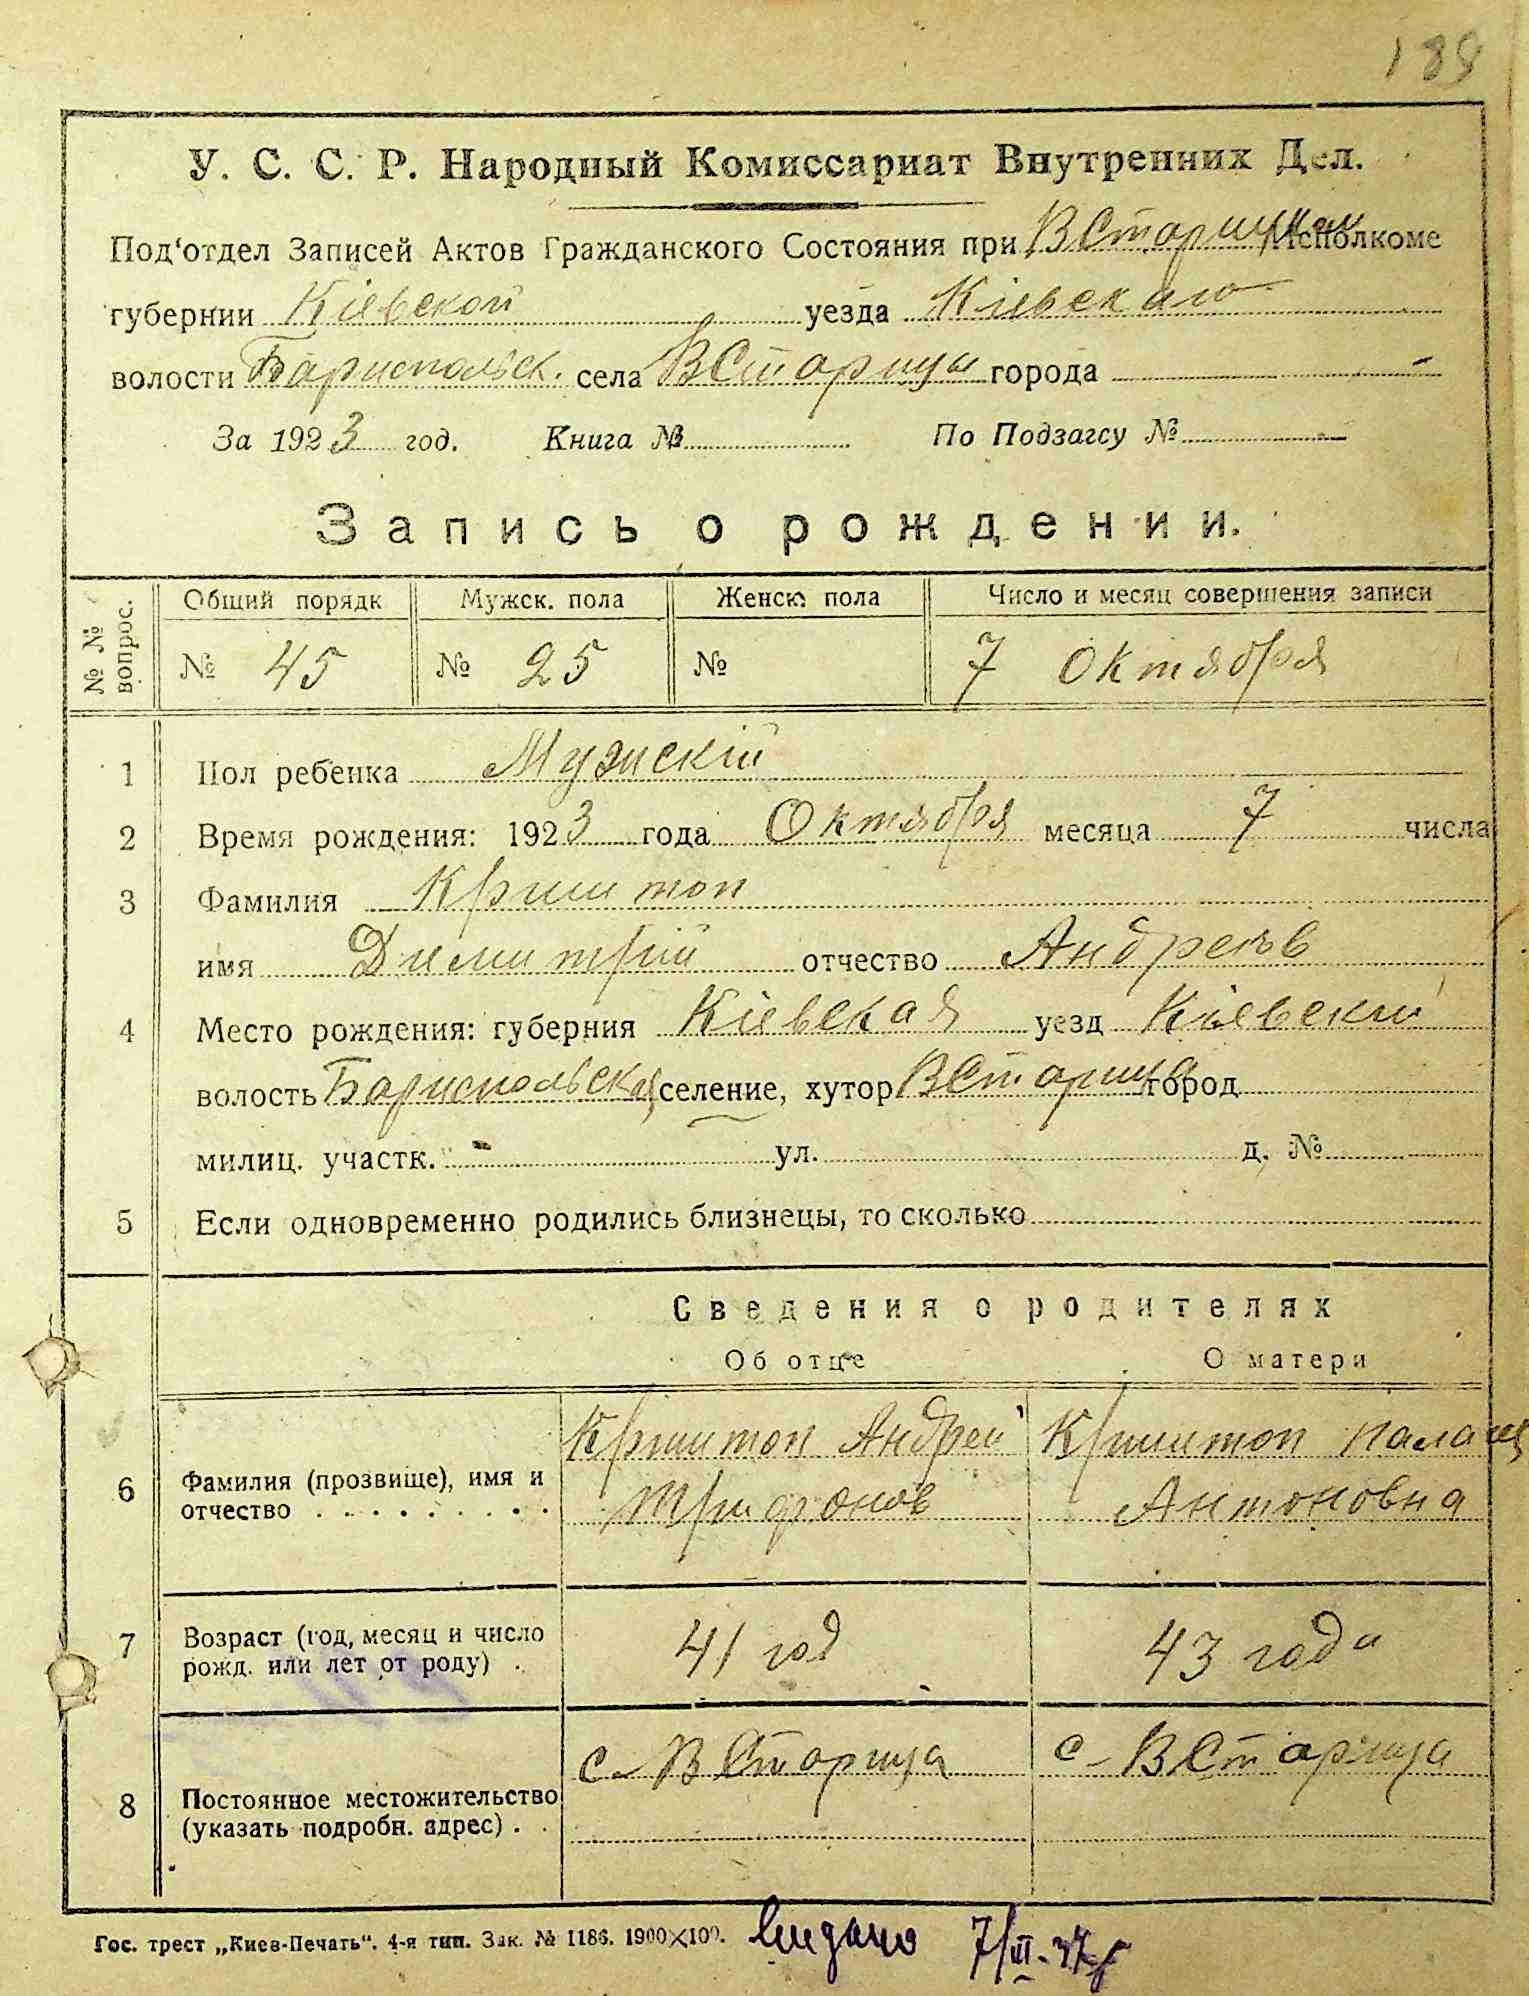 188
У. С. С. Р. Народный Комиссариат Внутренних Дел.
Под‘отдел Записей Актов Гражданского Состояния при ВСтарицком Исполкоме
губернии Кіевской уезда Кіевскаго
волости Бариспольск. села ВСтарицы города -
За 1923 год. Книга № По Подзагсу №
Запись о рождении.
№ № вопрос. Общий порядк Мужск. пола Женск. пола Число и месяц совершения записи
№ 45 № 25 № 7 Октября
1 Пол ребенка Мужскій
2 Время рождения: 1923 года Октября месяца 7 числа
3 Фамилия Криштоп
имя Димитрій отчество Андреев
4 Место рождения: губерния Кіевская уезд Кіевскій
волость Бариспольская селение, хутор ВСтарица город
милиц. участк. - ул. д. №
5 Если одновременно родились близнецы, то сколько
Сведения о родителях
Об отце О матери
6 Фамилия (прозвище), имя и отчество Криштоп Андрей Трифонов Криштоп Палагея Антоновна
7 Возраст (год, месяц и число рожд. или лет от роду) . 41 год 43 года
8 Постоянное местожительство (указать подробн. адрес) . . с-ВСтарица с-ВСтарица
Гос. трест „Киев-Печать“. 4-я тип. Зак. № 1186. 1900×100. 7/III-37